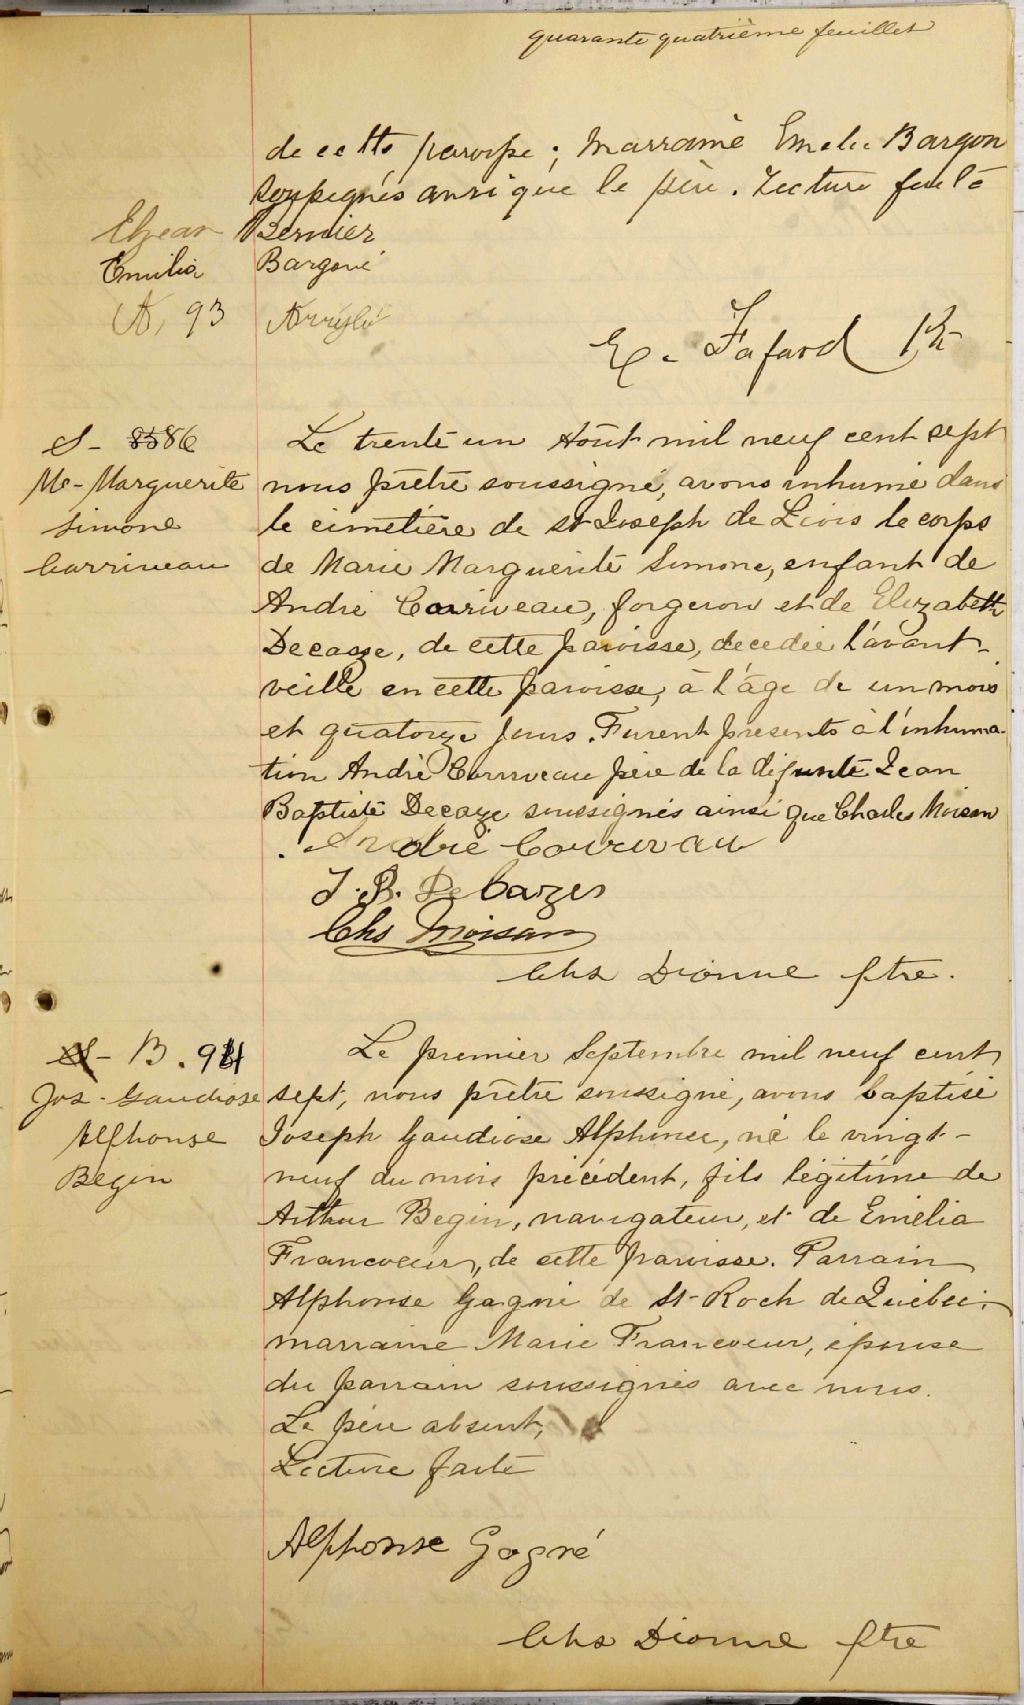 quarante quatrième feuillet
de cette paroisse ; Marraine Emelie Bargon
soussignés ainsi que le père. Lecture faite
Elzear Bernier
Emilia Bargoné
A, 93
E. Fafard Ptr
S - 86
Me - Marguerite
Simone
Corriveau
Le trente un Août mil neuf cent sept
nous prêtre soussigné, avons inhumé dans
le cimetière de St Joseph de Lévis le corps
de Marie Marguerite Simone, enfant de
André Corriveau, forgeron et de Elizabeth
Decaze, de cette paroisse, decedée l'avant-
veille en cette paroisse, à l'âge de un mois
et quatorze jours. Furent presents à l'inhuma-
tion André Corriveau père de la défunte Jean
Baptiste Decaze soussignés ainsi que Charles Moisan
André Corriveau
J. B. DeCazes
Chs Moisan
Chs Dionne ptre.
B. 94
Jos - Gaudiose
Alphonse
Begin
Le premier Septembre mil neuf cent
sept, nous prêtre soussigné, avons baptisé
Joseph Gaudiose Alphonse, né le vingt-
neuf du mois précédent, fils légitime de
Arthur Begin, navigateur, et de Emélia
Francoeur, de cette paroisse. Parrain
Alphonse Gagné de St-Roch de Québec;
marraine Marie Francoeur, épouse
du parrain soussignés avec nous.
Le père absent,
Lecture faite
Alphonse Gagné
Chs Dionne ptre